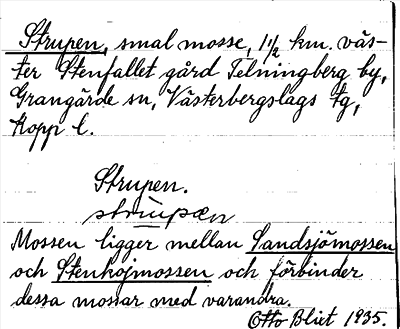 Strupen, smal mosse, 1 1/2 km. väs-
ter Stenfallet gård Telningberg by,
Grangärde sn, Västerbergslags tg,
Kopp l.
Strupen.
strupen
Mossen ligger mellan Sandsjömossen
och Stenkojmossen och förbinder
dessa mossar med varandra.
Otto Blixt 1935.